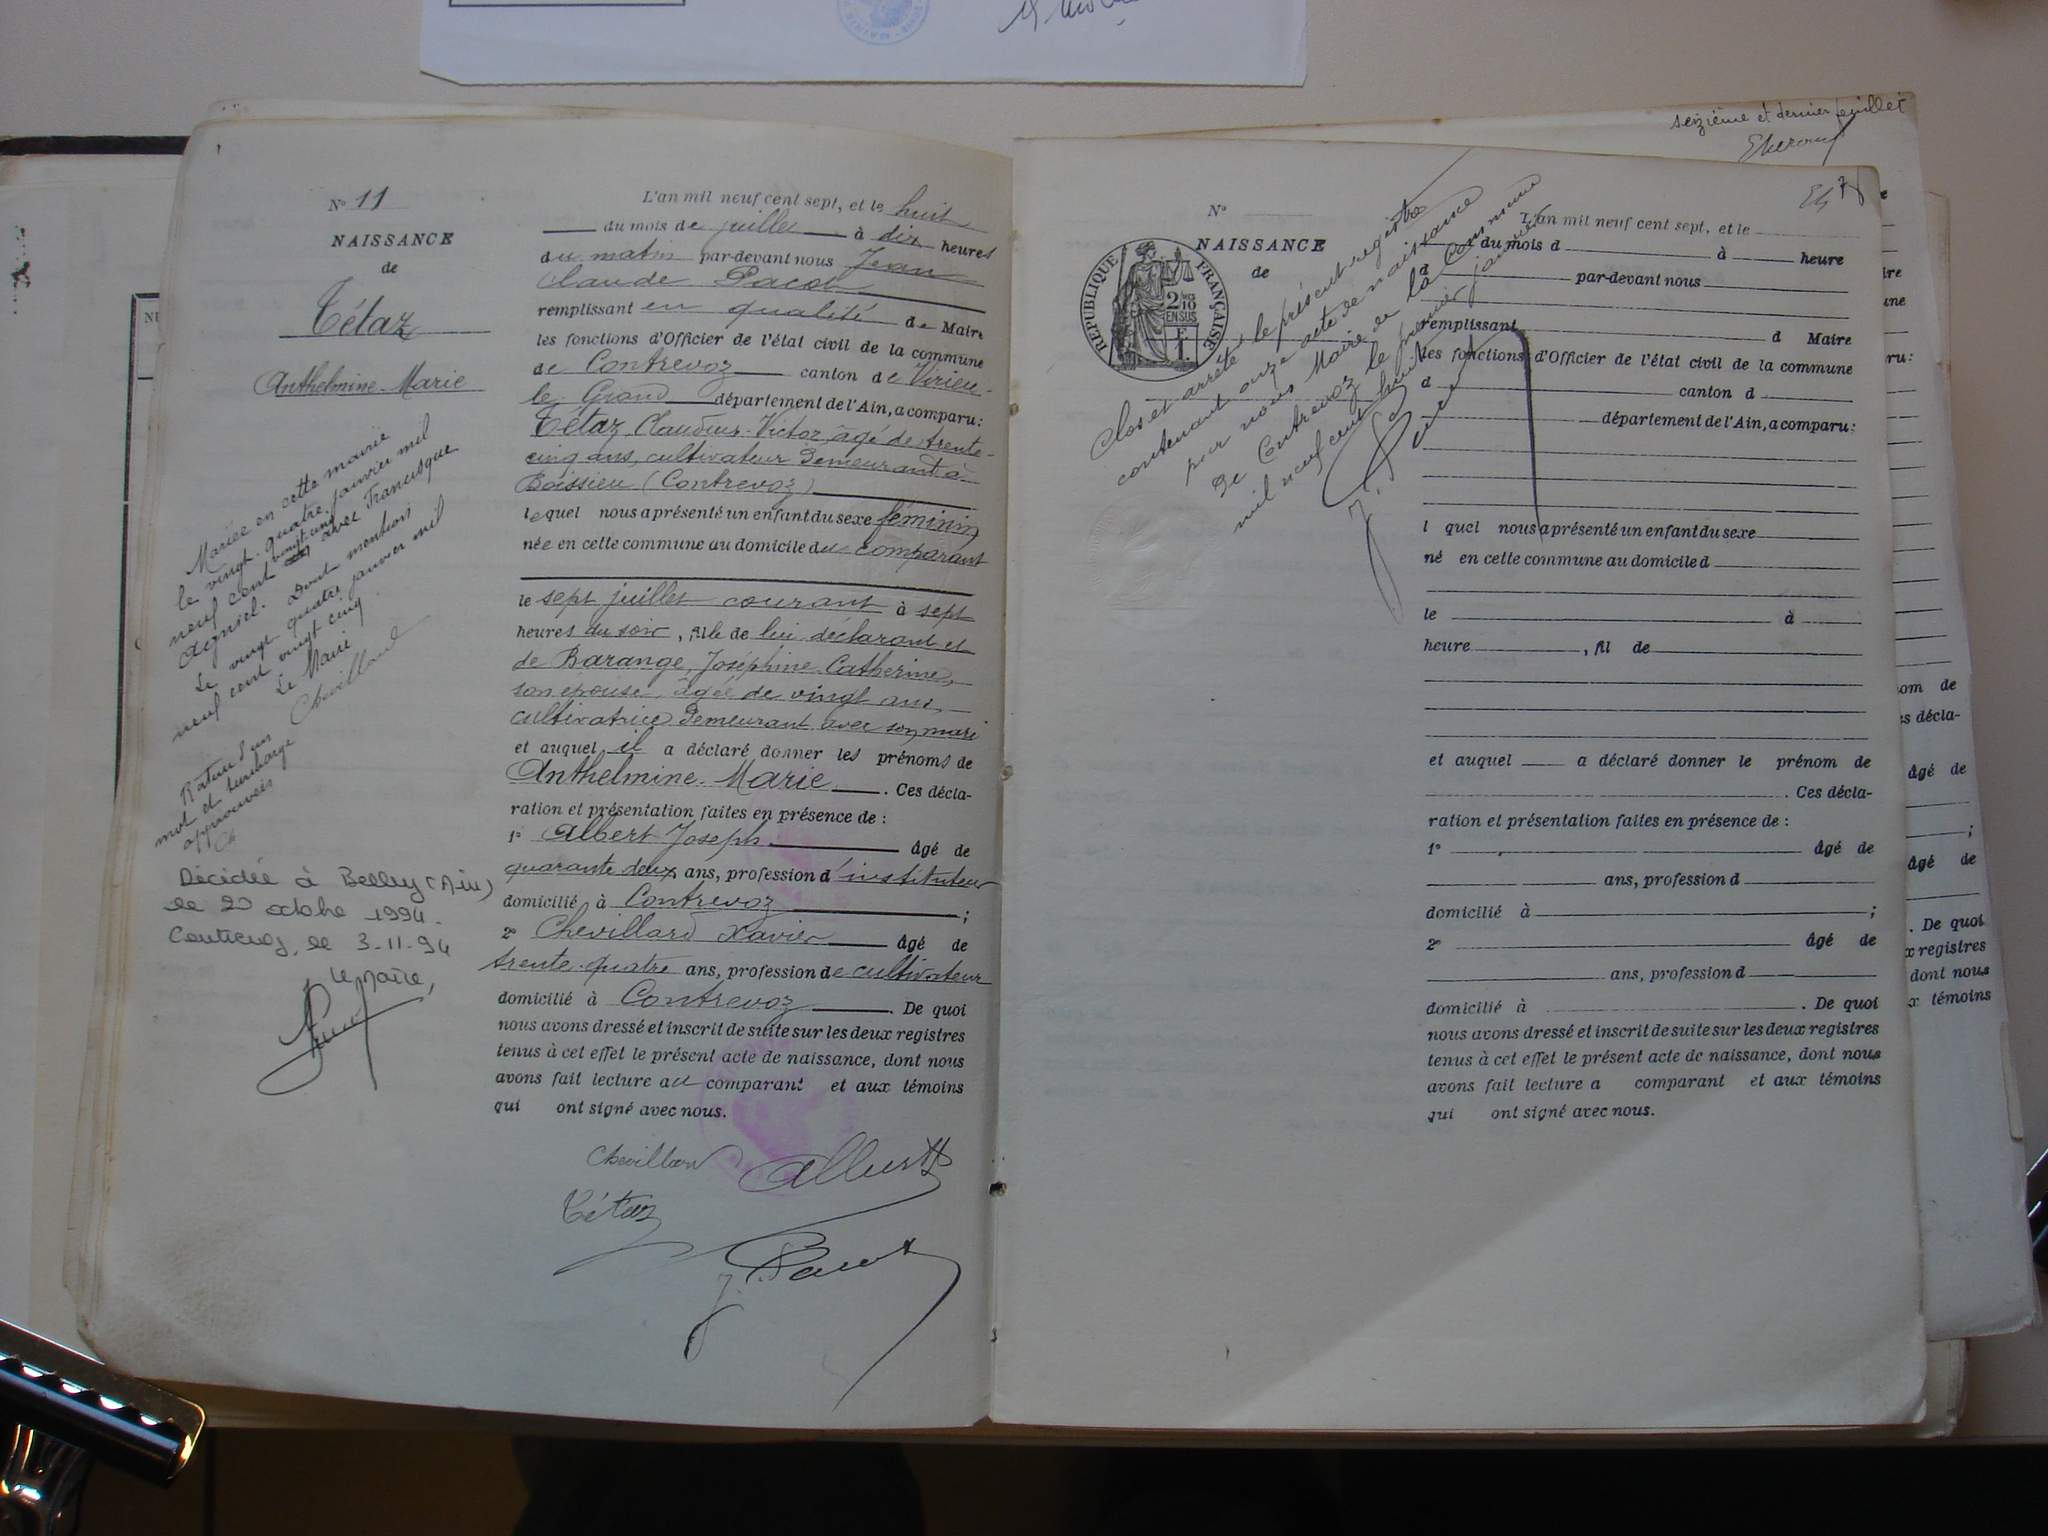 N° 11
NAISSANCE
de
Tétaz
Anthelmine-Marie
Mariée en cette mairie
le vingt-quatre janvier mil
neuf cent vingt cinq avec Francisque
Agniel. Dont mention
Le vingt quatre janvier mil
neuf cent vingt cinq
Le Maire
Chevillard
Rature d'un
mot et surcharge
approuvées
Ch
Décédée à Belley (Ain)
le 20 octobre 1994.
Contrevoz, le 3-11-94
Le Maire,
L'an mil neuf cent sept, et le huit
du mois de juillet à dix heures
du matin par-devant nous Jean
Claude Pacot
remplissant en qualité de Maire
les fonctions d'Officier de l'état civil de la commune
de Contrevoz canton de Virieu-
le Grand département de l'Ain, a comparu:
Tétaz, Claudius-Victor, âgé de trente-
cinq ans, cultivateur demeurant à
Boissieu (Contrevoz)
lequel nous a présenté un enfant du sexe féminin
née en cette commune au domicile du comparant
le sept juillet courant à sept
heures du soir, fille de lui déclarant et
de Barange, Joséphine Catherine,
son épouse, âgée de vingt ans,
cultivatrice demeurant avec son mari
et auquel il a déclaré donner les prénoms de
Anthelmine-Marie. Ces décla-
ration et présentation faites en présence de :
1° Albert Joseph âgé de
quarante deux ans, profession d'instituteur
domicilié à Contrevoz ;
2° Chevillard Xavier âgé de
trente-quatre ans, profession de cultivateur
domicilié à Contrevoz. De quoi
nous avons dressé et inscrit de suite sur les deux registres
tenus à cet effet le présent acte de naissance, dont nous
avons fait lecture au comparant et aux témoins
qui ont signé avec nous.
Chevillard Albert
Tétaz
J. Pacot
seizième et dernier feuillet
N°
NAISSANCE
de
RÉPUBLIQUE FRANÇAISE
2/10 EN SUS
Clos et arrêté le présent registre
contenant onze actes de naissance
par nous Maire de la Commune
de Contrevoz le premier janvier
mil neuf cent huit
J. Pacot
L'an mil neuf cent sept, et le
du mois d à heure
d par-devant nous
remplissant d Maire
les fonctions d'Officier de l'état civil de la commune
d canton d
département de l'Ain, a comparu:
l quel nous a présenté un enfant du sexe
né en cette commune au domicile d
le à
heure , fil de
et auquel a déclaré donner le prénom de
. Ces décla-
ration et présentation faites en présence de :
1° âgé de
ans, profession d
domicilié à ;
2° âgé de
ans, profession d
domicilié à . De quoi
nous avons dressé et inscrit de suite sur les deux registres
tenus à cet effet le présent acte de naissance, dont nous
avons fait lecture a comparant et aux témoins
qui ont signé avec nous.